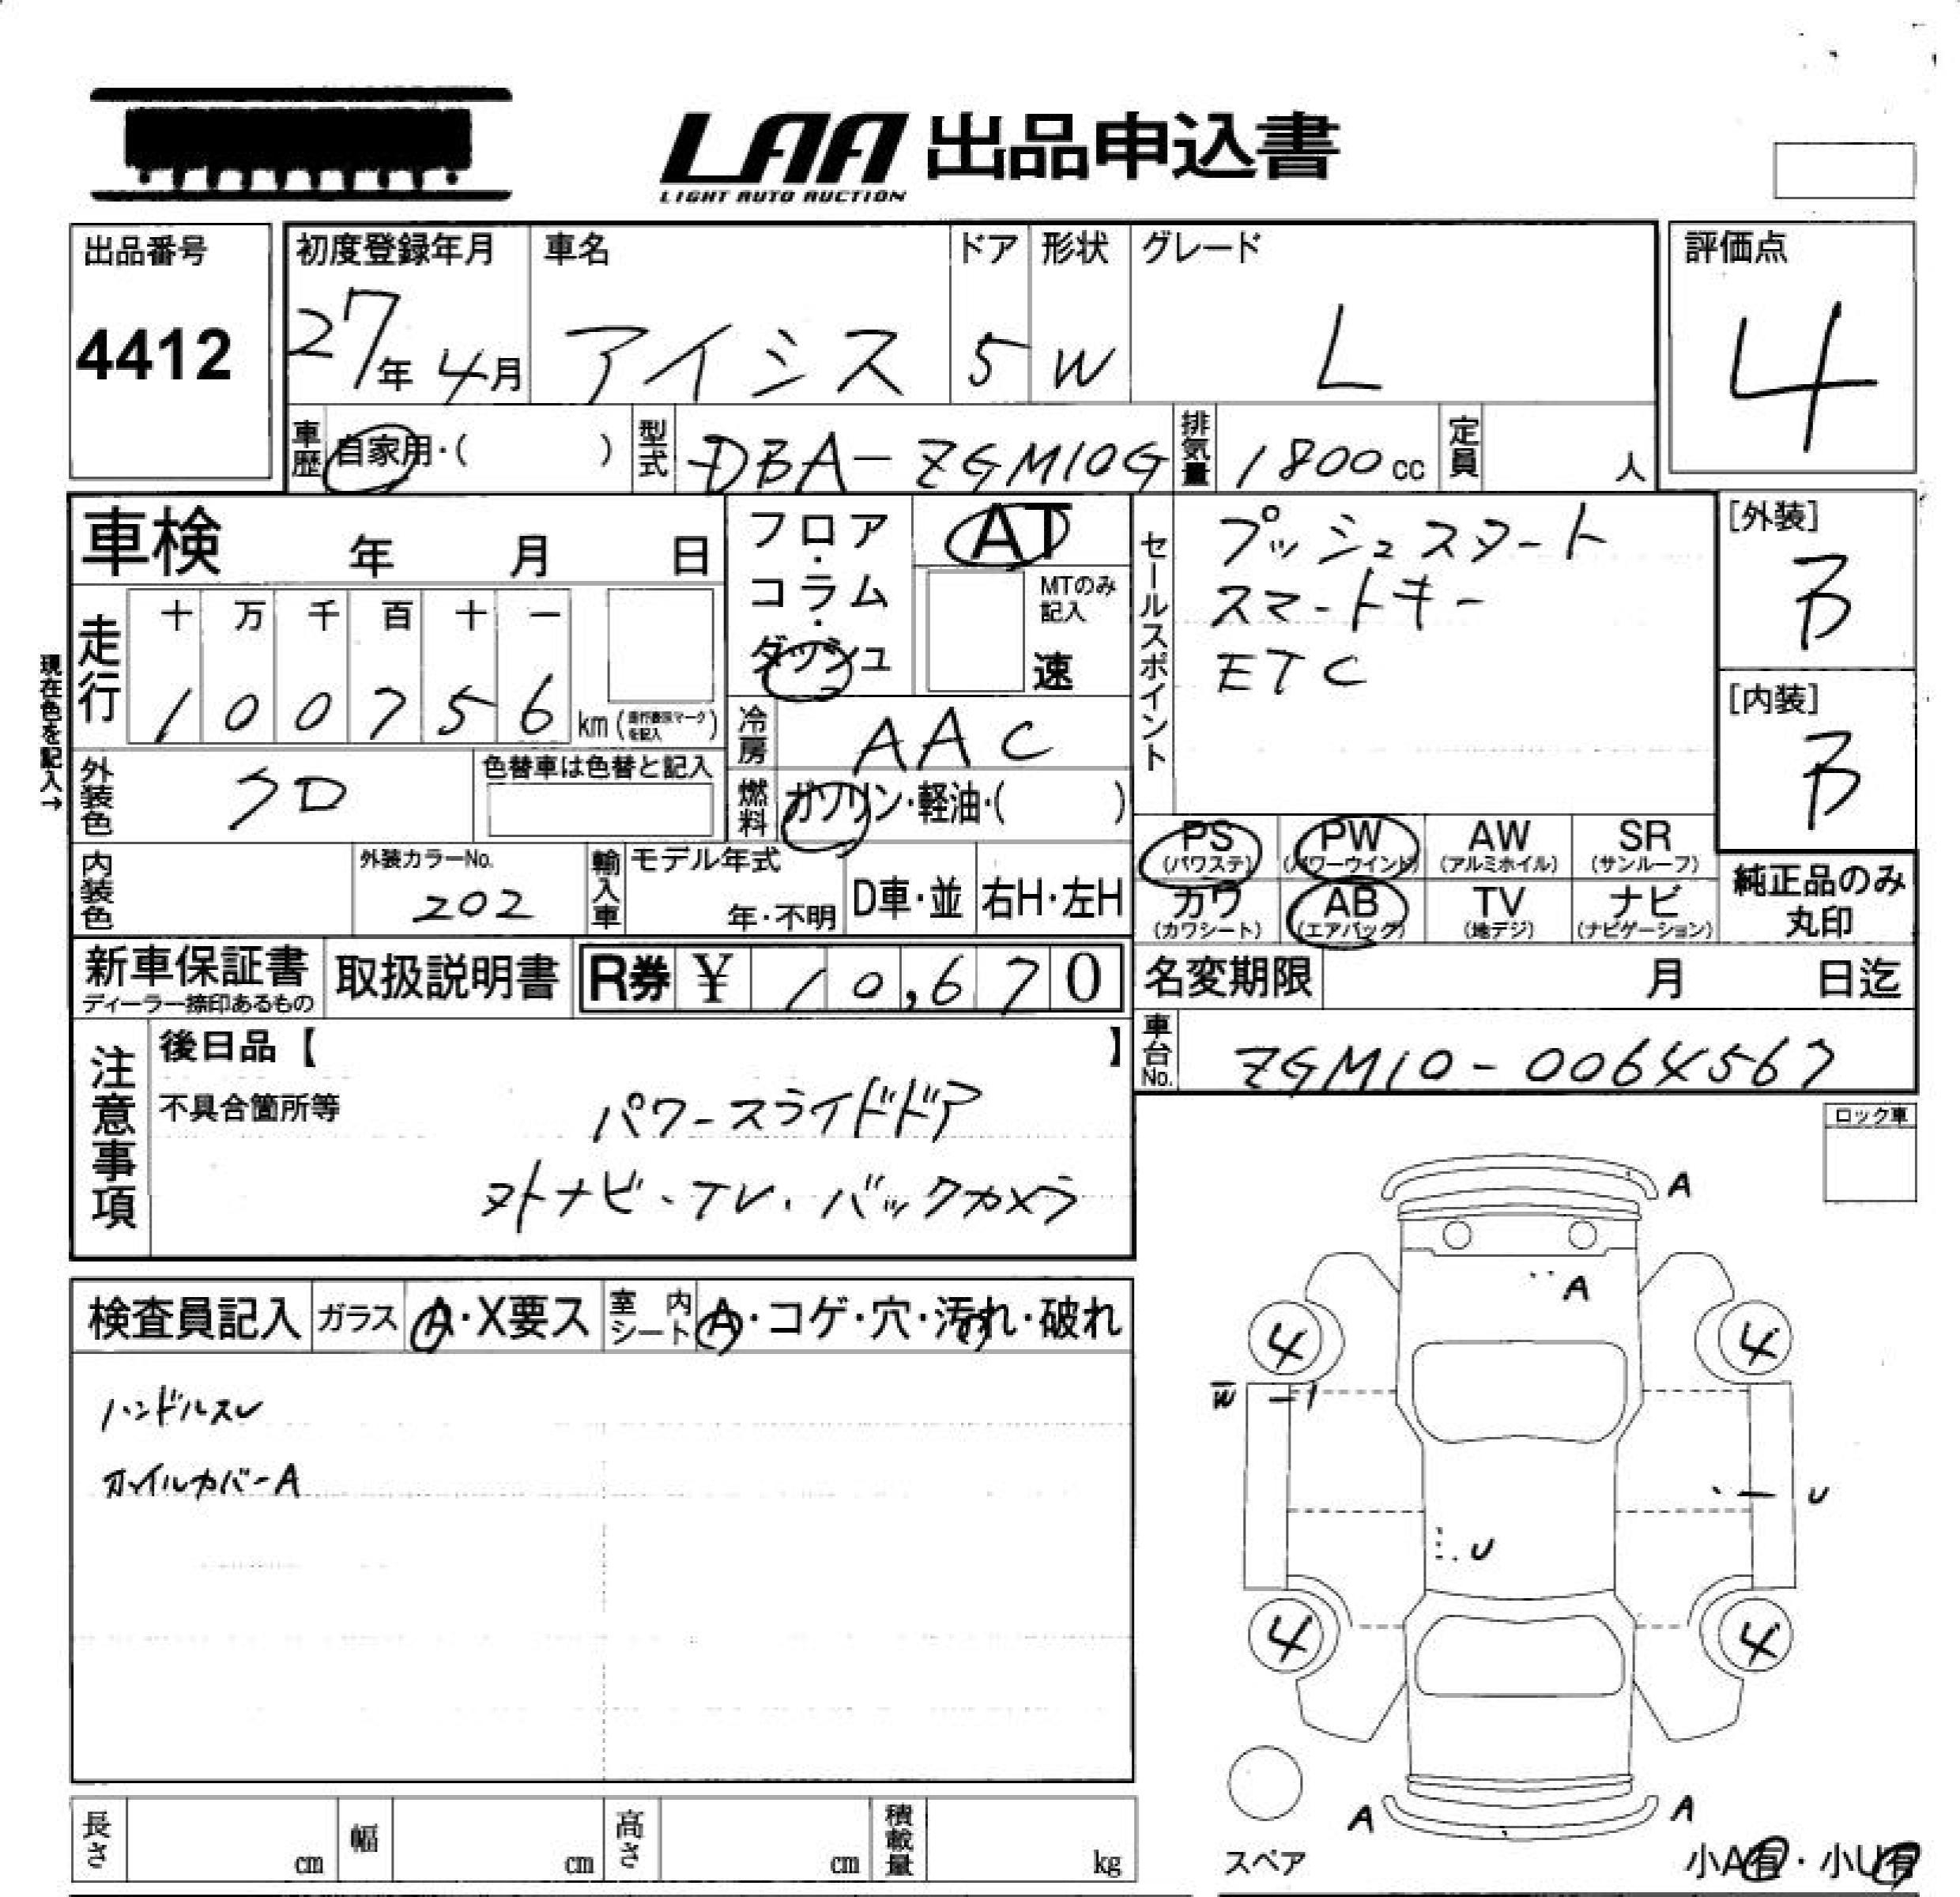 LAA 出品申込書
LIGHT AUTO AUCTION
出品番号
4412
初度登録年月
27年 4月
車名
アイシス
ドア
5
形状
W
グレード
L
評価点
4
車歴 自家用・( )
型式 DBA-ZGM10G
排気量 1800cc
定員 人
車検 年 月 日
フロア・コラム・ダッシュ
AT
MTのみ記入
速
セールスポイント
プッシュスタート
スマートキー
ETC
[外装]
B
[内装]
B
現在色を記入→
走行
十 万 千 百 十 一
1 0 0 7 5 6 km
冷房 AAC
外装色 クロ
色替車は色替と記入
燃料 ガソリン・軽油・( )
内装色
外装カラーNo.
202
輸入車
モデル年式
年・不明
D車・並
右H・左H
PS (パワステ)
PW (パワーウインド)
AW (アルミホイル)
SR (サンルーフ)
カワ (カワシート)
AB (エアバック)
TV (地デジ)
ナビ (ナビゲーション)
純正品のみ丸印
新車保証書
ディーラー捺印あるもの
取扱説明書
R券 ¥ 10,670
名変期限 月 日迄
車台No. ZGM10-0064567
注意事項
後日品【 】
不具合箇所等
パワースライドドア
ナビ・TV・バックカメラ
ロック車
検査員記入
ガラス A・X要ス
室内シート A・コゲ・穴・汚れ・破れ
ハンドルスレ
カバーA
A
A
4
4
W
U
U
4
4
A
A
スペア
小A有・小U有
長さ cm
幅 cm
高さ cm
積載量 kg